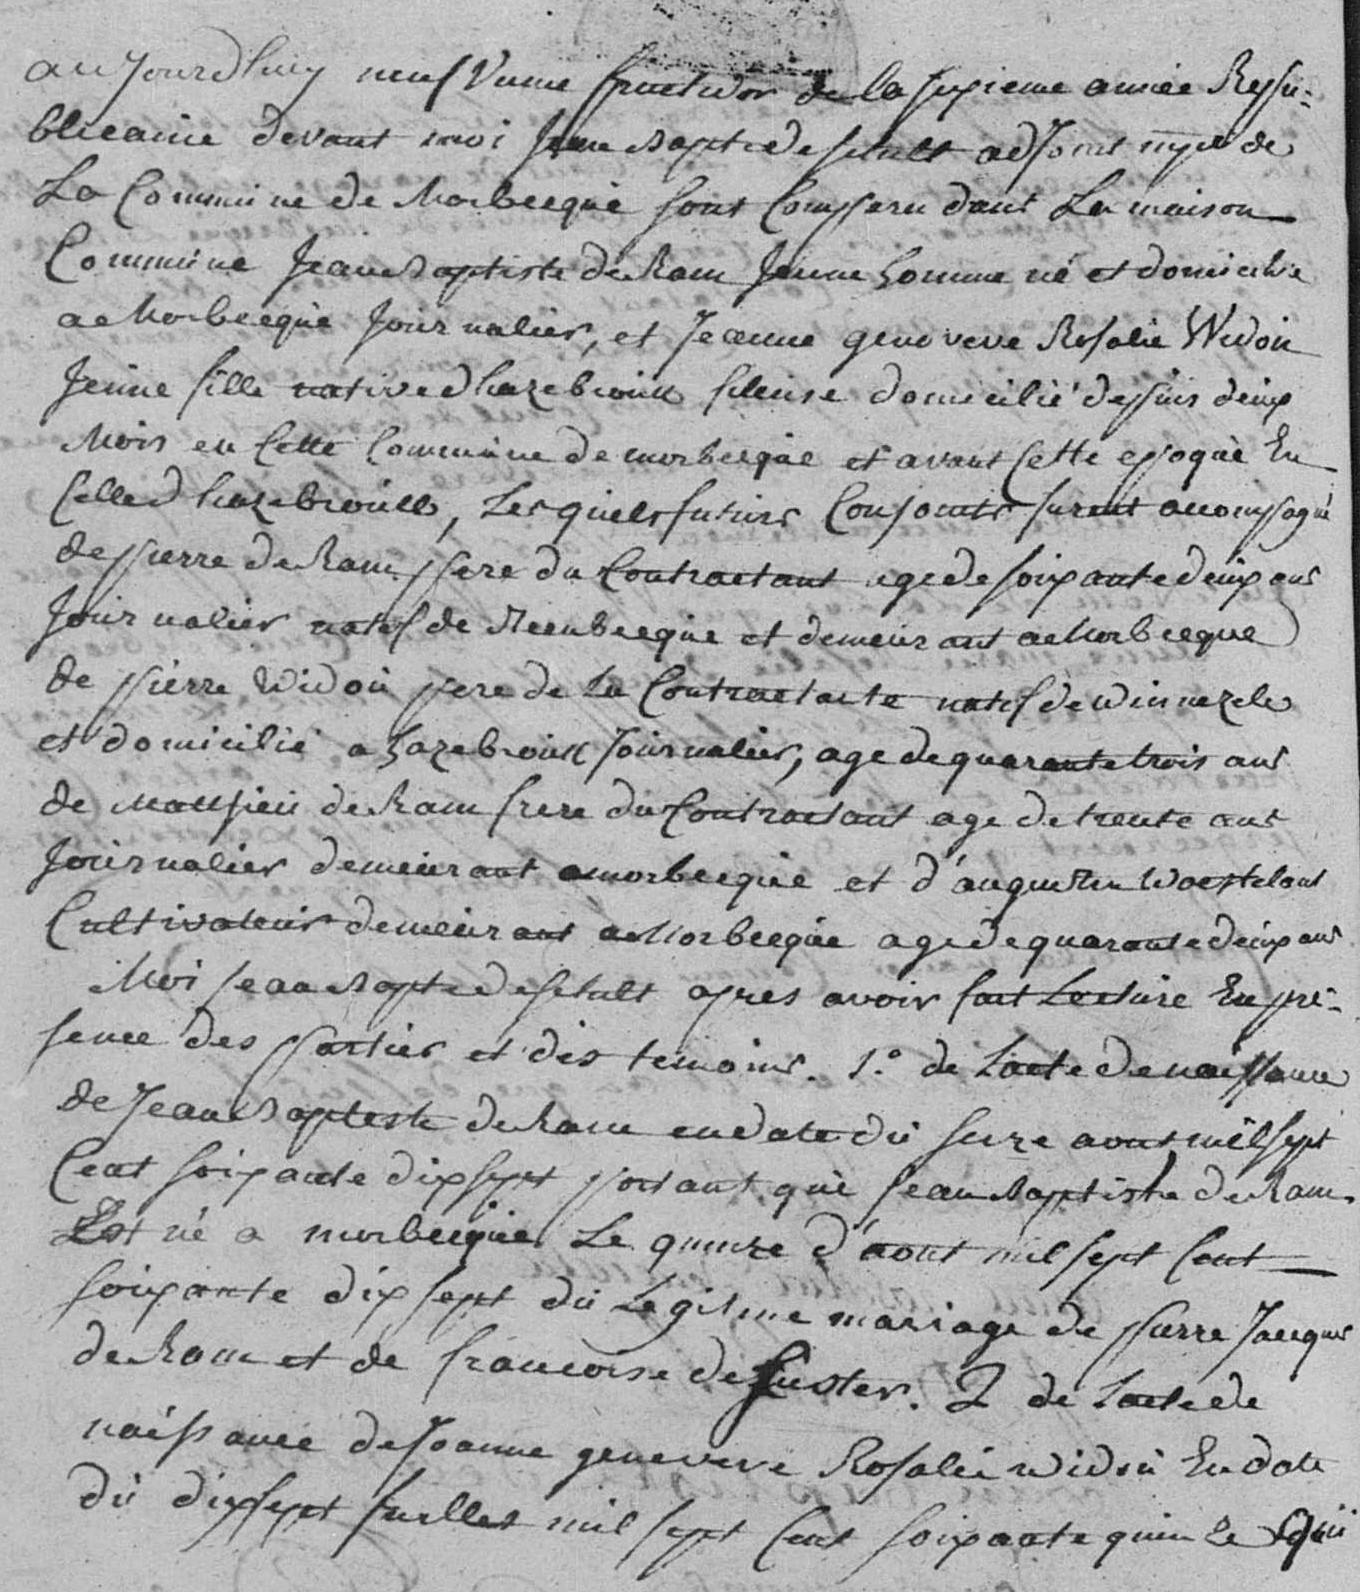 aujourdhuy neufvieme fructidor de la sixieme année Repu-
blicaine devant moi Jean Bapte deschult adjoint mpal de
La Commune de Morbecque sont Comparu dans La maison
Commune Jean Baptiste de Ram Jeune homme né et domicilie
a Morbecque Journalier, et Jeanne genoveve Rosalie Widou
Jeune fille native dhazebrouck fileuse domicilié depuis deux
Mois en Cette Commune de morbecque et avant Cette epoque En
Celle dhazebrouck, Lesquels futurs Conjoints furent accompagné
de pierre de Ram pere du Contractant age de soixante deux ans
Journalier natif de Steenbecque et demeurant a Morbecque
de pierre Widou pere de la Contractante natif de winnezele
et domicilié a hazebrouck Journalier, age de quarante trois ans
de Matthieu de Ram frere du Contractant age de trente ans
Journalier demeurant a morbecque et d'augustin Woestelant
Cultivateur demeurant a Morbecque age de quarante deux ans
Moi Jean Bapte deschult apres avoir fait Lecture En pre-
sence des parties et des temoins. 1.º de Lacte de naissance
de Jean Baptiste de Ram en date du seize aout mil sept
Cent soixante dix sept portant que Jean Baptiste de Ram
Est né a morbecque Le quinze d'aout mil sept Cent
soixante dix sept du Legitime mariage de pierre Jacques
de Ram et de francoise de Custer. 2 de Lacte de
naissance de Joanne geneveve Rosalie widou En date
du dixsept Juillet mil sept Cent soixante quinze qui